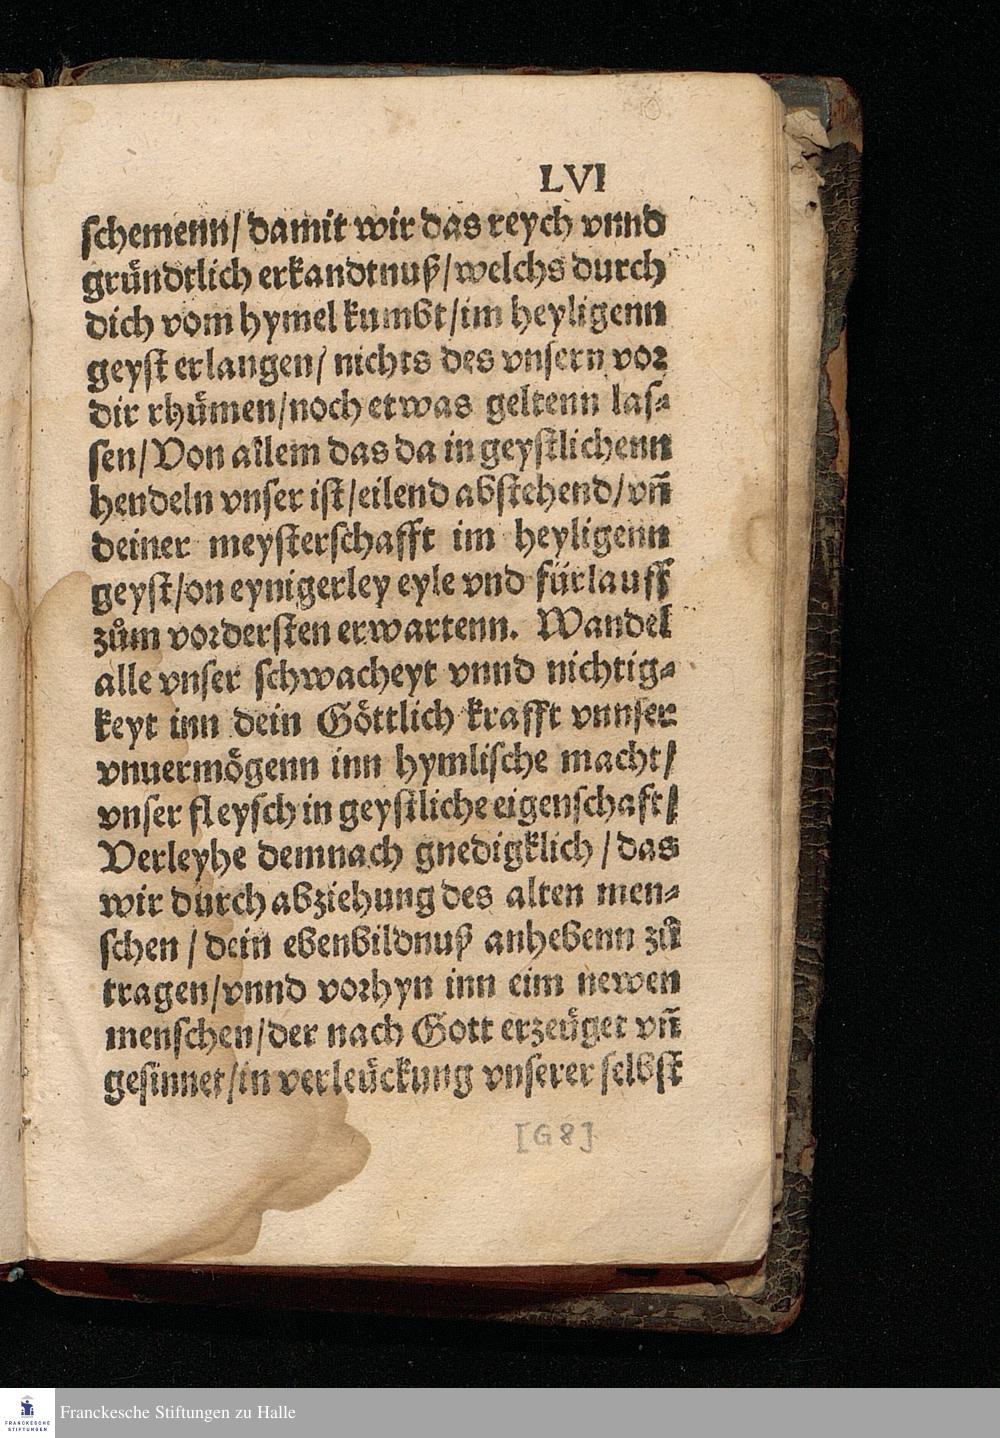 LVI
schemenn/ damit wir das reych vnnd
gründtlich erkandtnuß/welchs durch
dich vom hymel kumbt/im heyligenn
geyst erlangen/ nichts des vnsern vor
dir rhümen/noch etwas geltenn las⸗
sen/Von allem das da in geystlichenn
hendeln vnser ist/eilend abstehend/vñ
deiner meysterschafft im heyligenn
geyst/on eynigerley eyle vnd fürlauff
zům vordersten erwartenn. Wandel
alle vnser schwacheyt vnnd nichtig⸗
keyt inn dein Göttlich krafft vnnser
vnuermögenn inn hymlische macht/
vnser fleysch in geystliche eigenschaft/
Verleyhe demnach gnedigklich/das
wir durch abziehung des alten men⸗
schen/dein ebenbildnuß anhebenn zů
tragen/vnnd vorhyn inn eim newen
menschen/der nach Gott erzeüget vñ
gesinnet/in verleückung vnserer selbst
[G8]
FRANCKESCHE
STIFTUNGEN
Franckesche Stiftungen zu Halle